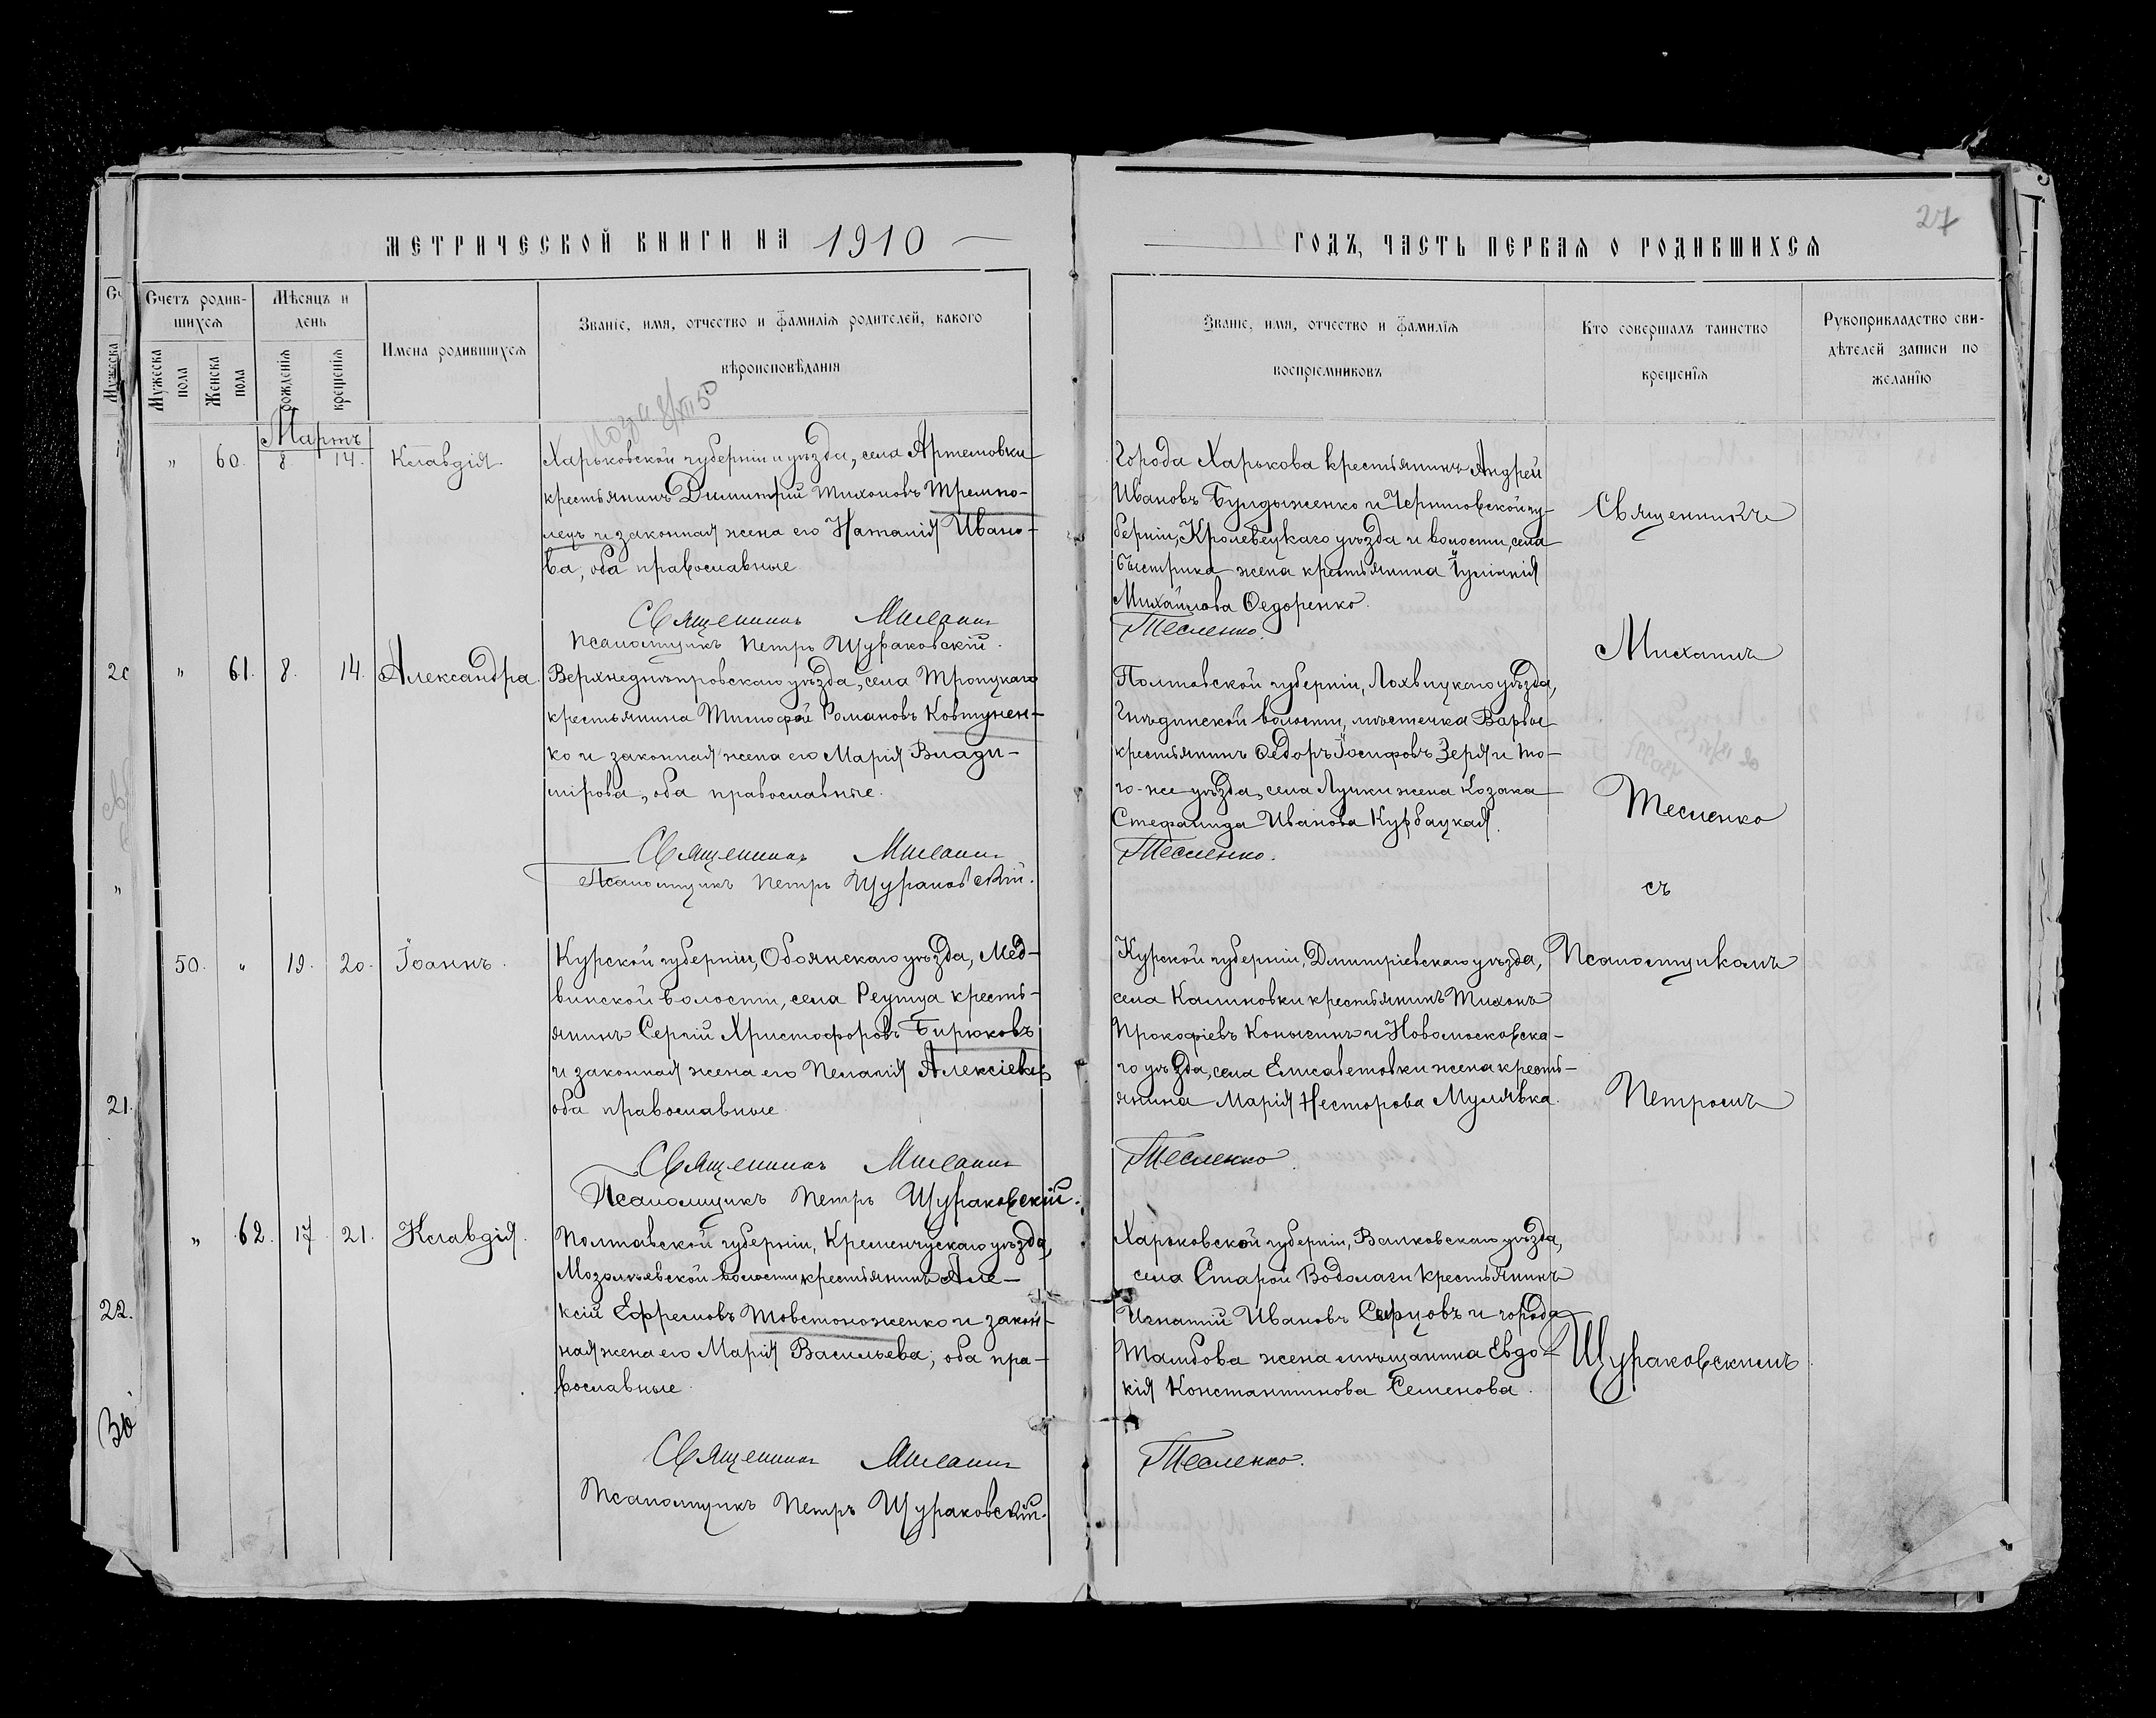 27
МЕТРИЧЕСКОЙ КНИГИ НА 1910
ГОДЪ, ЧАСТЬ ПЕРВАЯ О РОДИВШИХСЯ
Счетъ родив-
шихся
Мужеска
пола
Женска
пола
Мѣсяцъ и
день
рожденія
крещенія
Имена родившихся
Званіе, имя, отчество и фамилія родителей, какого
вѣроисповѣданія
Званіе, имя, отчество и фамилія
воспріемниковъ
Кто совершалъ таинство
крещенія
Рукоприкладство сви-
дѣтелей записи по
желанію
Мартъ
" 60. 8. 14. Клавдія
Харьковской губерніи и уѣзда, села Артемовки
крестьянинъ Димитрій Тихоновъ Тремпо-
лецъ и законная жена его Наталія Ивано-
ва, оба православные
Священникъ Михаилъ
Псаломщикъ Петръ Щураковскій.
Города Харькова крестьянинъ Андрей
Ивановъ Булдыженко и Черниговской гу-
берніи, Кролевецкаго уѣзда и волости, села
Быстрика жена крестьянина Іуліанія
Михайлова Ѳедоренко.
Тесленко.
" 61. 8. 14. Александра.
Верхнеднѣпровскаго уѣзда, села Троицкаго
крестьянина Тимофей Романовъ Ковтунен-
ко и законная жена его Марія Влади-
мірова, оба православные.
Священникъ Михаилъ
Псаломщикъ Петръ Щураковскій.
Полтавской губерніи, Лохвицкаго уѣзда,
Гнѣдинской волости, мѣстечка Варвы
крестьянинъ Ѳедоръ Іосифовъ Зеря и то-
го-же уѣзда, села Лучки жена козака
Стефанида Иванова Курбацкая.
Тесленко.
50. " 19. 20. Іоаннъ.
Курской губерніи, Обоянскаго уѣзда, Мед-
винской волости, села Реутца кресть-
янинъ Сергій Христофоровъ Бирюковъ
и законная жена его Пелагія Алексіева
оба православные
Священникъ Михаилъ
Псаломщикъ Петръ Щураковскій.
Курской губерніи, Дмитріевскаго уѣзда,
села Калиновки крестьянинъ Тихонъ
Прокофіевъ Конычинъ и Новомосковска-
го уѣзда, села Елисаветовки жена кресть-
янина Марія Несторова Мулявка.
Тесленко.
" 62. 17. 21. Клавдія.
Полтавской губерніи, Кременчугскаго уѣзда,
Мозолѣевской волости крестьянинъ Але-
ксій Ефремовъ Товстоноженко и закон-
ная жена его Марія Васильева; оба пра-
вославные.
Священникъ Михаилъ
Псаломщикъ Петръ Щураковскій.
Харьковской губерніи, Валковскаго уѣзда,
села Старой Водолаги крестьянинъ
Игнатій Ивановъ и города
Тамбова жена мѣщанина Евдо-
кія Константинова Семенова.
Тесленко.
Священникъ
Михаилъ
Тесленко
съ
Псаломщикомъ
Петромъ
Щураковскимъ
21.
22.